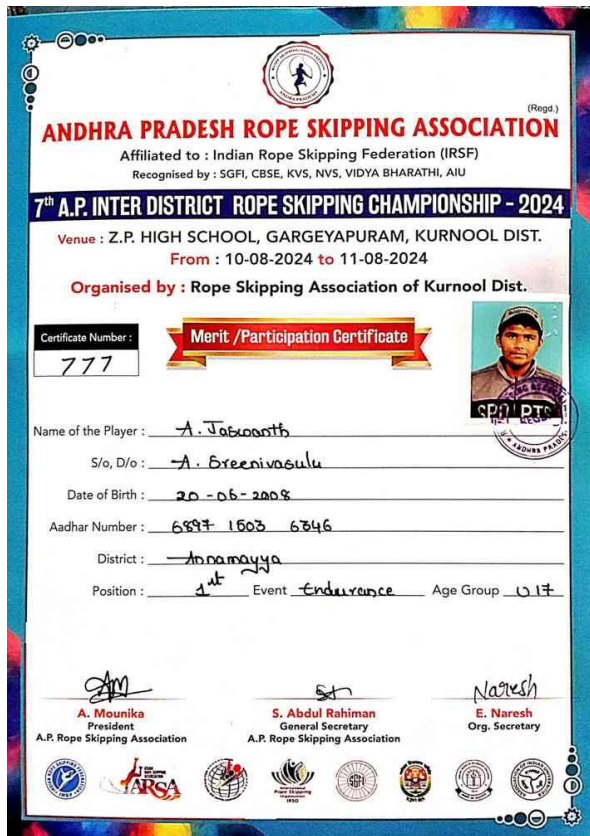 (Regd.)
ANDHRA PRADESH ROPE SKIPPING ASSOCIATION
Affiliated to : Indian Rope Skipping Federation (IRSF)
Recognised by : SGFI, CBSE, KVS, NVS, VIDYA BHARATHI, AIU
7th A.P. INTER DISTRICT ROPE SKIPPING CHAMPIONSHIP - 2024
Venue : Z.P. HIGH SCHOOL, GARGEYAPURAM, KURNOOL DIST.
From : 10-08-2024 to 11-08-2024
Organised by : Rope Skipping Association of Kurnool Dist.
Certificate Number :
777
Merit /Participation Certificate
Name of the Player : A. Jaswanth
S/o, D/o : A. Sreenivasulu
Date of Birth : 20-06-2008
Aadhar Number : 6897 1503 6346
District : Annamayya
Position : 1st Event Endurance Age Group U17
Naresh
A. Mounika
President
A.P. Rope Skipping Association
S. Abdul Rahiman
General Secretary
A.P. Rope Skipping Association
E. Naresh
Org. Secretary
ARSA